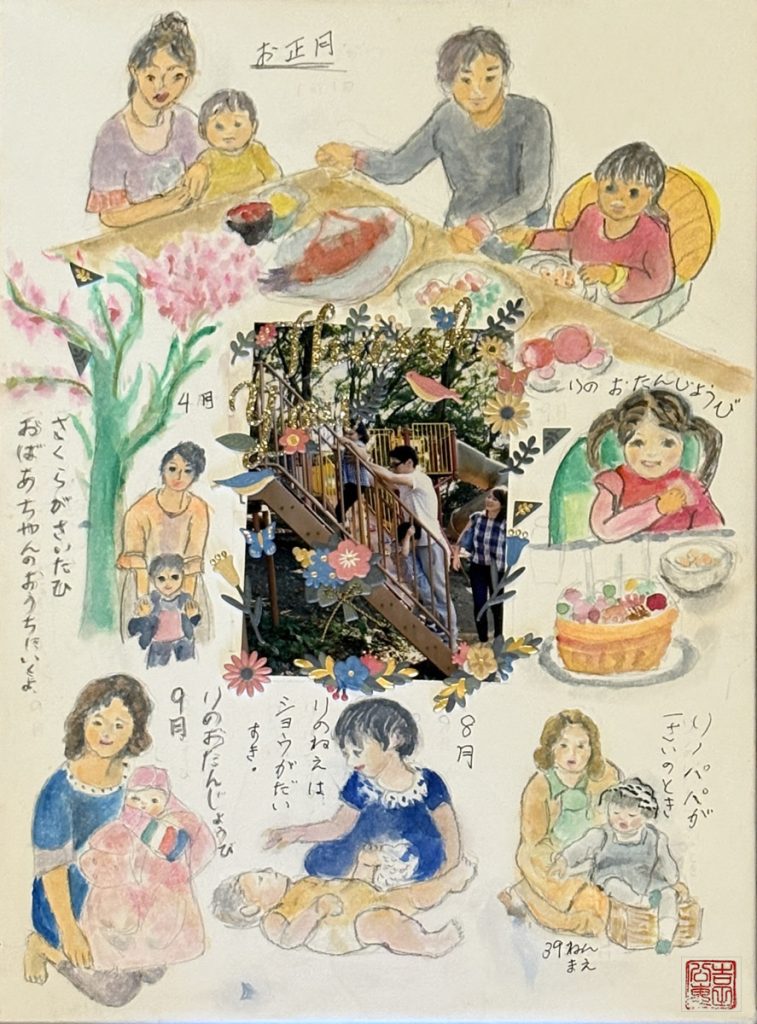 お正月
りの おたんじょうび
4月
さくらがさいたひ
おばあちゃんのおうちにいくよ
8月
りのねえは
ショウがだい
すき。
りのおたんじょうび
9月
りノパパが
一さいのとき
39ねん
まえ